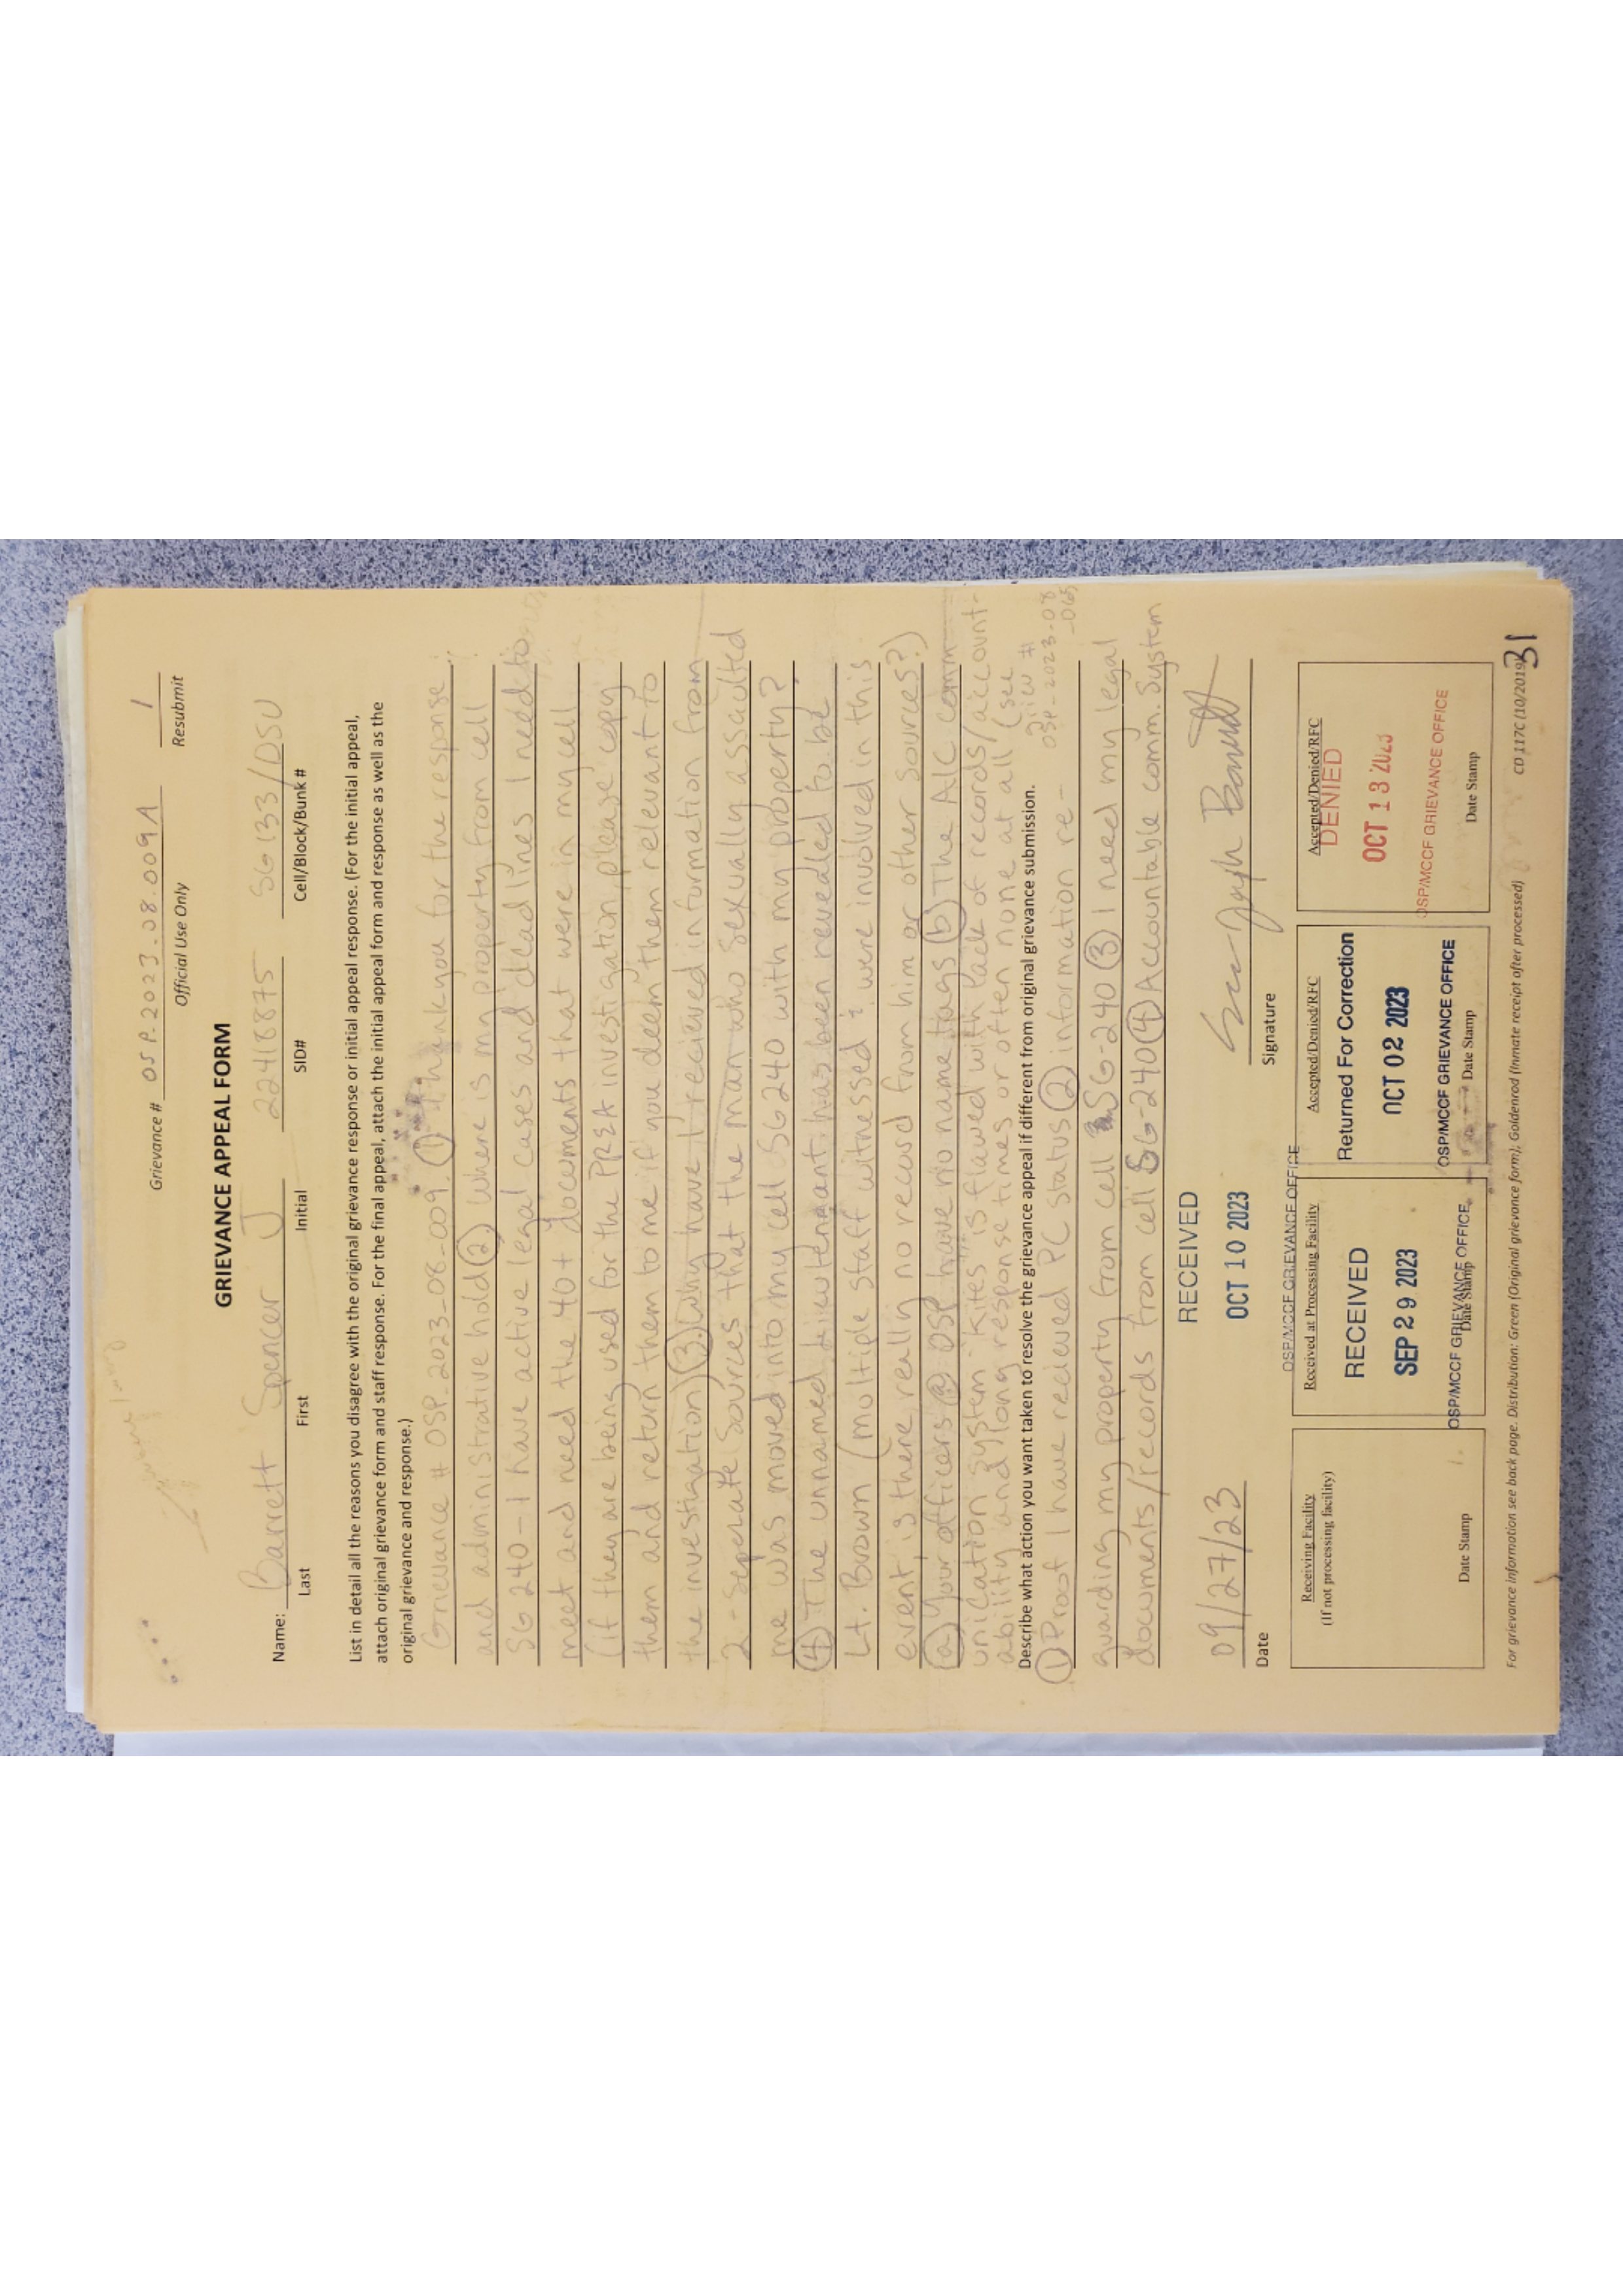 Grievance # OSP.2023.08.009A 1
Official Use Only Resubmit
GRIEVANCE APPEAL FORM
Name: Barrett Spencer J 22418875 SG133/DSU
Last First Initial SID# Cell/Block/Bunk #
List in detail all the reasons you disagree with the original grievance response or initial appeal response. (For the initial appeal,
attach original grievance form and staff response. For the final appeal, attach the initial appeal form and response as well as the
original grievance and response.)
Grievance # OSP.2023-08-009. (1) thank you for the response
and administrative hold (2) where is my property from cell
SG240 - I have active legal cases and deadlines I need to
meet and need the 40+ documents that were in my cell
(If they are being used for the PREA investigation please copy
them and return them to me if you deem them relevant to
the investigation) (3) why have I recieved information from
2 - Seperate Sources that the man who sexually assaulted
me was moved into my cell SG240 with my property?
(4) The unnamed lieutenant has been revealed to be
Lt. Brown (multiple staff witnessed & were involved in this
event, is there really no record from him or other sources?)
(a) your officers @ OSP have no name tags (b) The AIC comm-
unication system - Kites is flawed with lack of records/account-
ability and long response times or often none at all (see
OSP-2023-08
-065
Describe what action you want taken to resolve the grievance appeal if different from original grievance submission.
(1) Proof I have recieved PC status (2) information re-
guarding my property from cell SG-240 (3) I need my legal
documents/records from cell SG-240 (4) Accountable comm. System
09/27/23
Date Signature
RECEIVED
OCT 10 2023
OSP/MCCF GRIEVANCE OFFICE
Receiving Facility
(If not processing facility)
Date Stamp
Received at Processing Facility
RECEIVED
SEP 29 2023
OSP/MCCF GRIEVANCE OFFICE
Date Stamp
Accepted/Denied/RFC
Returned For Correction
OCT 02 2023
OSP/MCCF GRIEVANCE OFFICE
Date Stamp
Accepted/Denied/RFC
DENIED
OCT 13 2023
OSP/MCCF GRIEVANCE OFFICE
Date Stamp
For grievance information see back page. Distribution: Green (Original grievance form), Goldenrod (Inmate receipt after processed) CD 117C (10/2019)
31